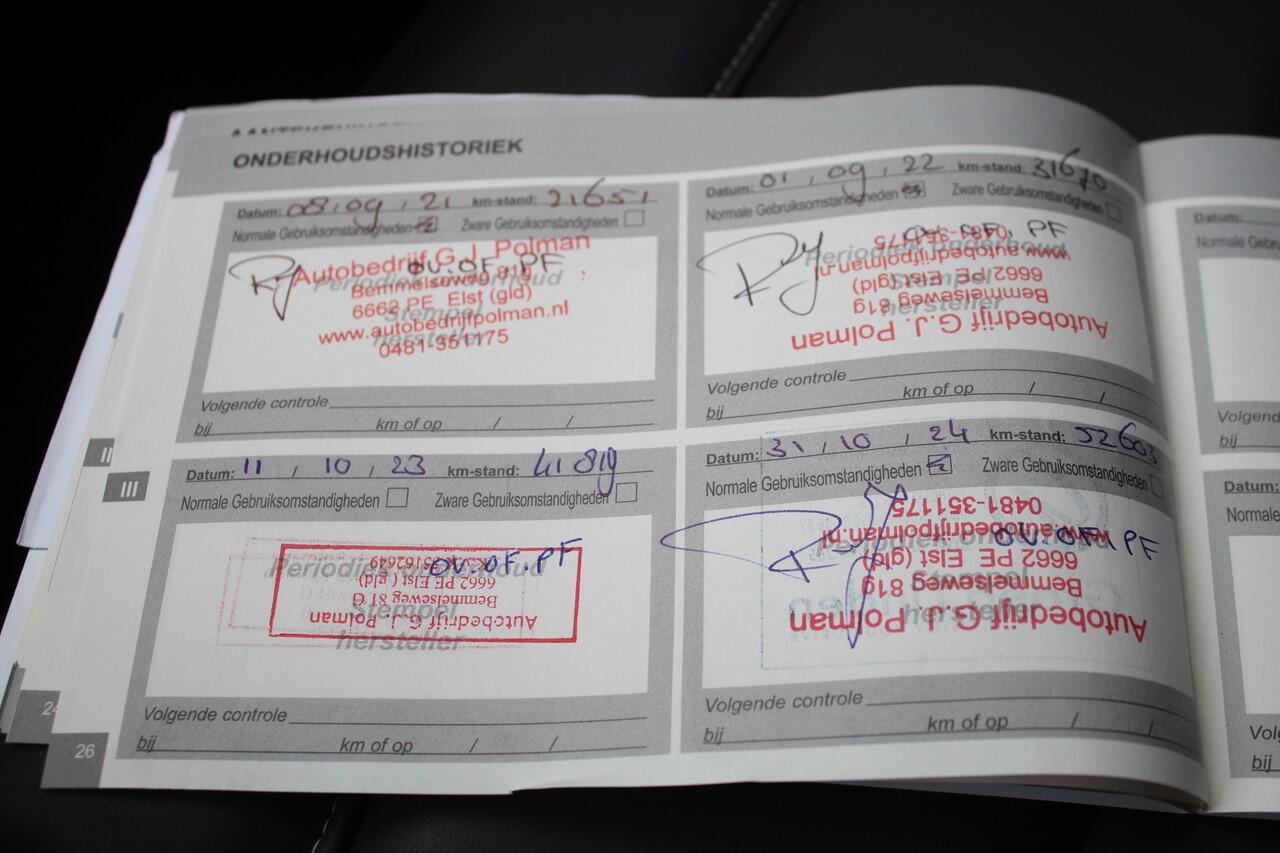 ONDERHOUDSHISTORIEK
Datum: 08 / 09 / 21 km-stand: 21651
Normale Gebruiksomstandigheden Zware Gebruiksomstandigheden
Autobedrijf G.J. Polman
OV. OF. PF
Bemmelseweg 81g
Periodiek onderhoud
6662 PE Elst (gld)
Stempel
www.autobedrijfpolman.nl
hersteller
0481-351175
Volgende controle
bij km of op / /
Datum: 01 / 09 / 22 km-stand: 31670
Normale Gebruiksomstandigheden Zware Gebruiksomstandigheden
OV. OF. PF
Periodiek onderhoud
Stempel
hersteller
Autobedrijf G.J. Polman
Bemmelseweg 81g
6662 PE Elst (gld)
www.autobedrijfpolman.nl
0481-351175
Volgende controle
bij km of op / /
Datum: 11 / 10 / 23 km-stand: 41819
Normale Gebruiksomstandigheden Zware Gebruiksomstandigheden
OV. OF. PF
Periodiek onderhoud
Stempel
hersteller
Autobedrijf G.J. Polman
Bemmelseweg 81 G
6662 PE Elst (gld)
Volgende controle
bij km of op / /
Datum: 31 / 10 / 24 km-stand: 52603
Normale Gebruiksomstandigheden Zware Gebruiksomstandigheden
OV. OF. PF
Periodiek onderhoud
Stempel
hersteller
Autobedrijf G.J. Polman
Bemmelseweg 81g
6662 PE Elst (gld)
www.autobedrijfpolman.nl
0481-351175
Volgende controle
bij km of op / /
II
III
24
26
Datum:
Normale
Volgend
bij
Datum:
Normale
Vol
bij